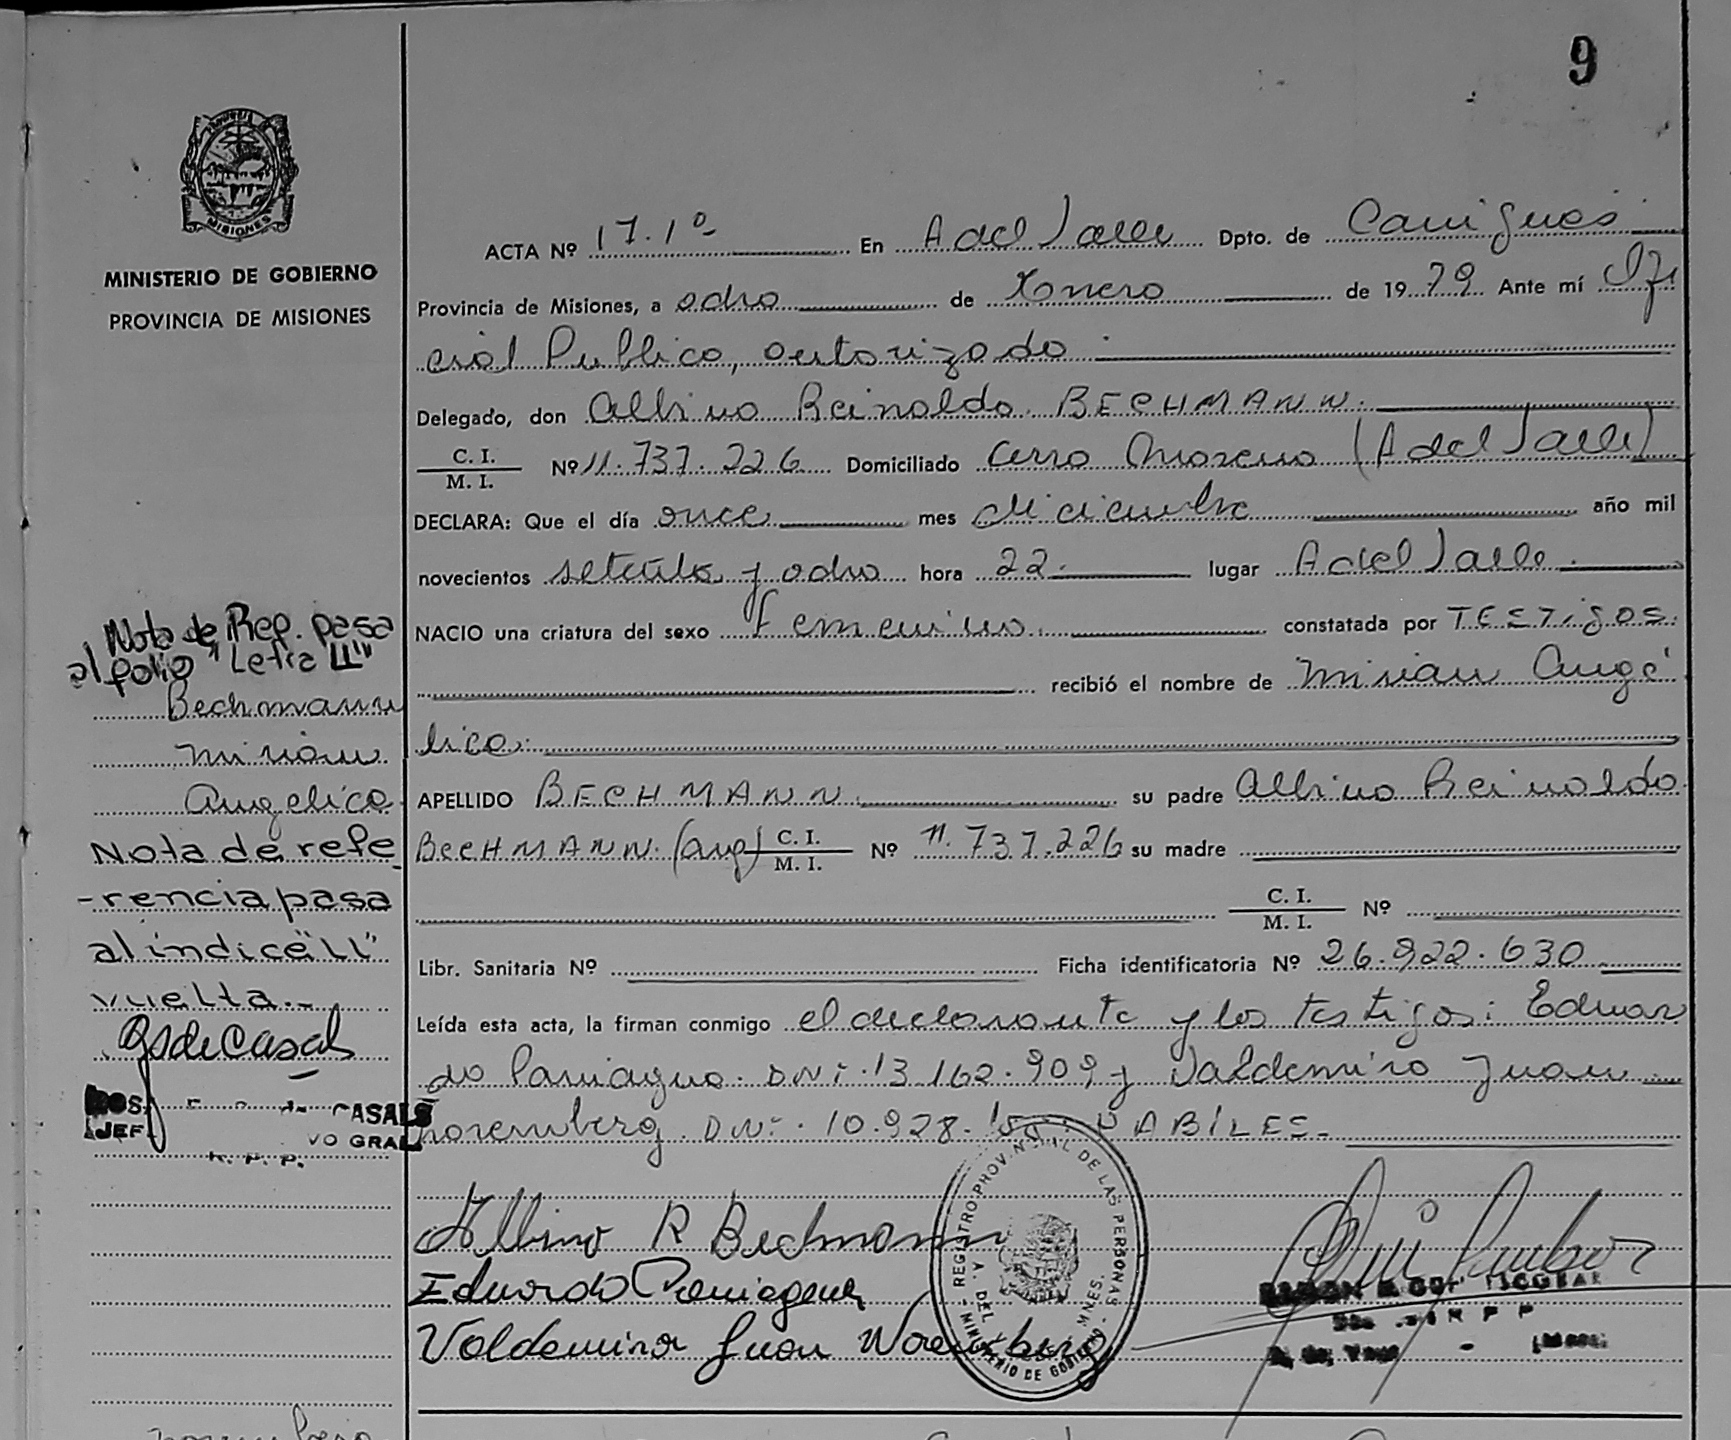 9
MISIONES
MINISTERIO DE GOBIERNO
PROVINCIA DE MISIONES
ACTA Nº 17.1º En A del Valle Dpto. de Cainguas
Provincia de Misiones, a ocho de Enero de 1979 Ante mí Ofi
cial Publico, autorizado
Delegado, don Albino Reinoldo BECHMANN.
C. I. / M. I. Nº 11.737.226 Domiciliado Cerro Moreno (A del Valle)
DECLARA: Que el día once mes diciembre año mil
novecientos setenta y ocho hora 22. lugar A del Valle.
NACIO una criatura del sexo Femenino constatada por TESTigos.
recibió el nombre de Mirian Angé
lica.
APELLIDO BECHMANN. su padre Albino Reinoldo
BECHMANN. (arg) C. I. / M. I. Nº 11.737.226 su madre
C. I. / M. I. Nº
Libr. Sanitaria Nº Ficha identificatoria Nº 26.922.630
Leída esta acta, la firman conmigo el declarante y los testigos: Eduar
do Paniagua. DNI. 13.162.909 y Valdemiro Juan
Noremberg. DNI. 10.928. HABILES.
Albino R Bechmann
Eduardo Paniagua
Valdemiro Juan Noremberg
REGISTRO PROVINCIAL DE LAS PERSONAS
A. DEL VALLE MNES.
MINISTERIO DE GOBIERNO
Nota de Rep. pasa
al folio "Letra LL"
Bechmann
Mirian
Angelica
Nota de refe
-rencia pasa
al indice "LL"
vuelta.-
GsdeCasals
CASALS
JEF. VO GRAL
R. P. P.